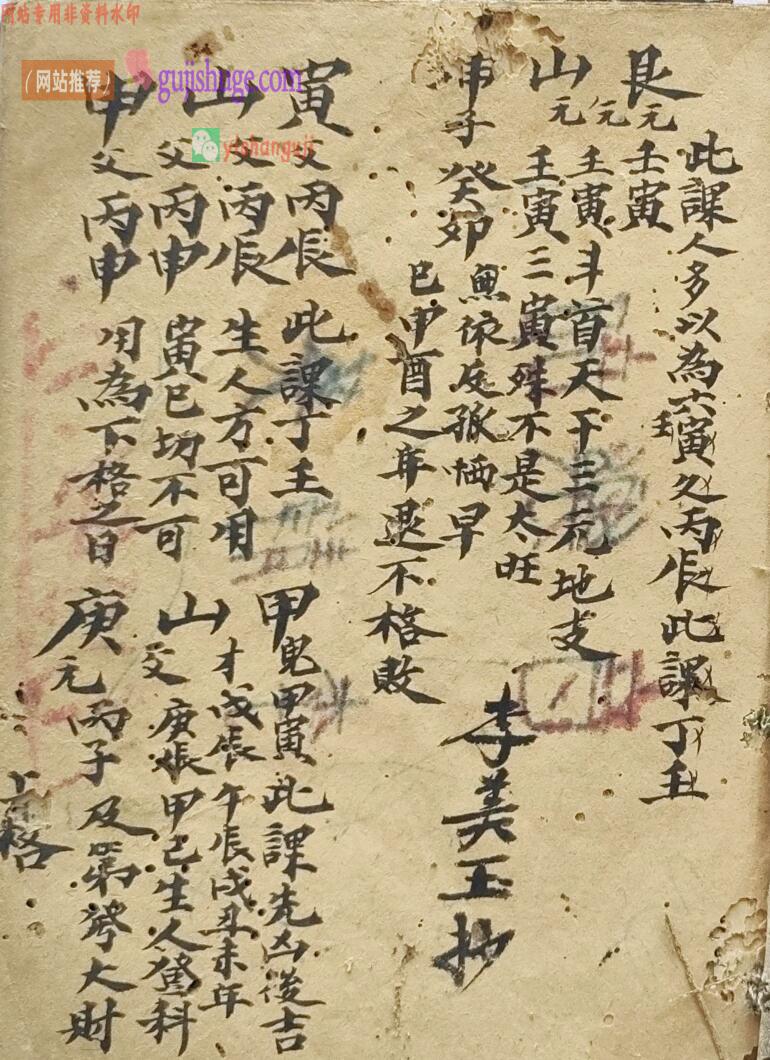 网站专用非资料水印
(网站推荐)
gujishuge.com
yishanguji
此課人多以為六壬寅久丙辰此課丁壬
艮元壬寅
元壬寅斗首天干三元地支
山元壬寅三寅殊不是大旺
甲子癸卯
魚依反孤恓早
巳申酉之年退不格敗
李美玉抄
寅父丙辰此課丁壬
山父丙辰生人方可用
父丙申寅巳切不可
申父丙申用為下格之日
甲鬼甲寅此課先凶後吉
山才戊辰午辰戌丑未年
父庚辰甲己生人登科
庚元丙子及第發大財
上格